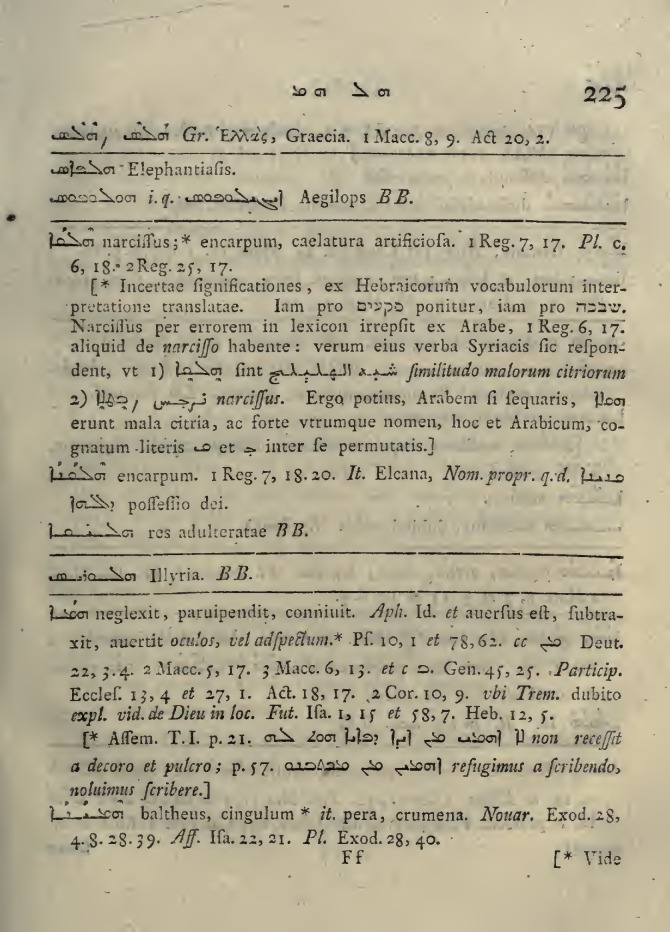 ܗܠ ܗܡ 225
Gr. Ἑλλὰς, Graecia. 1 Macc. 8, 9. Act 20, 2.
Elephantiaſis.
i. q. Aegilops BB.
narciſſus;* encarpum, caelatura artificioſa. 1 Reg. 7, 17. Pl. c.
6, 18. 2 Reg. 25, 17.
[* Incertae ſignificationes, ex Hebraicorum vocabulorum inter-
pretatione translatae. Iam pro פקעים ponitur, iam pro שבכה.
Narciſſus per errorem in lexicon irrepſit ex Arabe, 1 Reg. 6, 17.
aliquid de narciſſo habente: verum eius verba Syriacis ſic reſpon-
dent, vt 1) ſint ſimilitudo malorum citriorum
2) نرجس narciſſus. Ergo potius, Arabem ſi ſequaris,
erunt mala citria, ac forte vtrumque nomen, hoc et Arabicum, co-
gnatum literis et inter ſe permutatis.]
encarpum. 1 Reg. 7, 18. 20. It. Elcana, Nom. propr. q. d. ܩܢܝܢܐ
ܕܐܠܗܐ poſſeſſio dei.
res adulteratae BB.
Illyria. BB.
neglexit, paruipendit, conniuit. Aph. Id. et auerſus eſt, ſubtra-
xit, auertit oculos, vel adſpectum.* Pſ. 10, 1 et 78, 62. cc ܡܢ Deut.
22, 3. 4. 2 Macc. 5, 17. 3 Macc. 6, 13. et c ܒ. Gen. 45, 25. Particip.
Eccleſ. 13, 4 et 27, 1. Act. 18, 17. 2 Cor. 10, 9. vbi Trem. dubito
expl. vid. de Dieu in loc. Fut. Iſa. 1, 15 et 58, 7. Heb. 12, 5.
[* Aſſem. T. I. p. 21. ܠܐ non receſſit
a decoro et pulcro; p. 57. ܡܢ refugimus a ſcribendo,
noluimus ſcribere.]
baltheus, cingulum * it. pera, crumena. Nouar. Exod. 28,
4. 8. 28. 39. Aff. Iſa. 22, 21. Pl. Exod. 28, 40.
Ff [* Vide